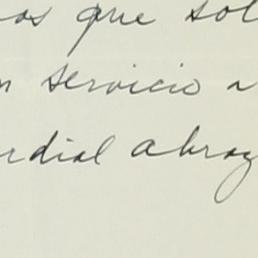 os que sol
n servicio a
rdial abraz